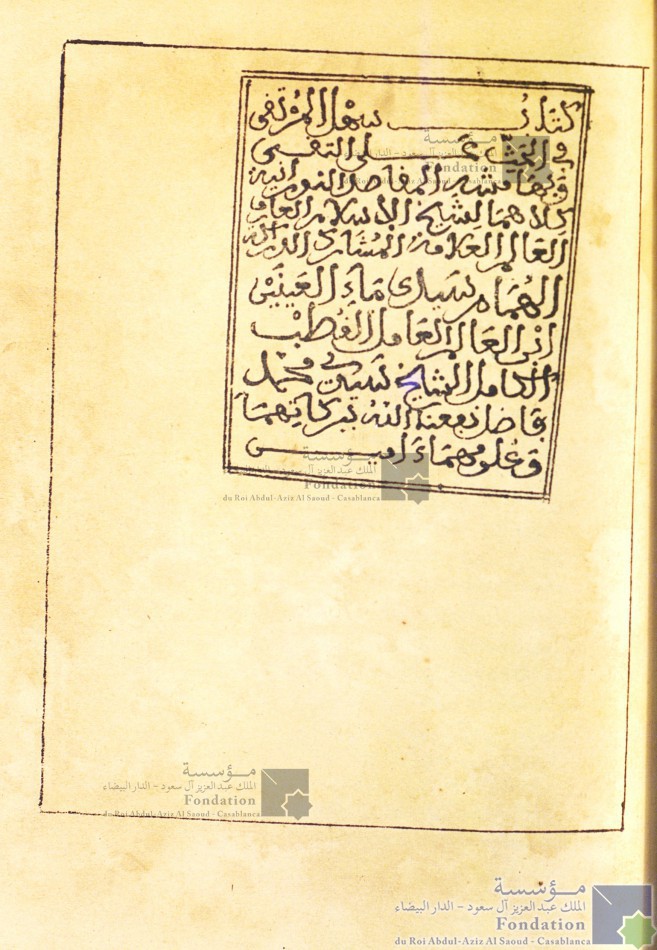 كتاب سهل المرتقى
في الحث على التقى
وبهامشه المقاصد النورانية
كلاهما لشيخ الإسلام العارف
العالم العلامة المشارك الدراكة
الهمام سيدي ماء العينين
ابن العالم العامل القطب
الكامل الشيخ سيدي محمد
فاضل نفعنا الله ببركاتهما
وعلومهما ءامين
مؤسسة
الملك عبد العزيز آل سعود - الدار البيضاء
Fondation
du Roi Abdul-Aziz Al Saoud - Casablanca
مؤسسة
الملك عبد العزيز آل سعود - الدار البيضاء
Fondation
du Roi Abdul-Aziz Al Saoud - Casablanca
مؤسسة
الملك عبد العزيز آل سعود - الدار البيضاء
Fondation
du Roi Abdul-Aziz Al Saoud - Casablanca